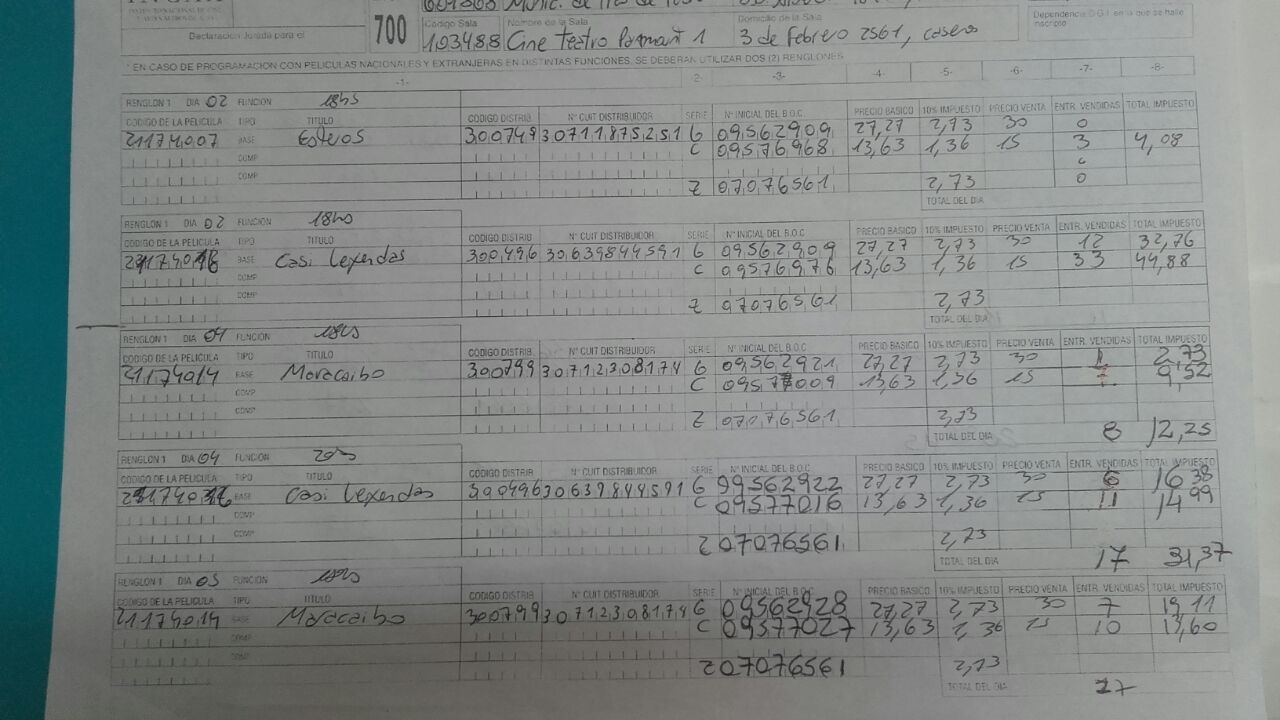 Declaración Jurada para el
700
Código Sala Nombre de la Sala Domicilio de la Sala
103488 Cine Teatro Paramount 1 3 de Febrero 2561, Caseros
Dependencia D.G.I. en la que se halla inscripto
* EN CASO DE PROGRAMACION CON PELICULAS NACIONALES Y EXTRANJERAS EN DISTINTAS FUNCIONES, SE DEBERAN UTILIZAR DOS (2) RENGLONES
-1- 2- -3- -4- -5- -6- -7- -8-
RENGLON 1 DIA 02 FUNCION 18hs
CODIGO DE LA PELICULA TIPO TITULO CODIGO DISTRIB Nº CUIT DISTRIBUIDOR SERIE Nº INICIAL DEL B.O.C. PRECIO BASICO 10% IMPUESTO PRECIO VENTA ENTR. VENDIDAS TOTAL IMPUESTO
21174007 BASE Esteros 300749 30711875251 G 09562909 27,27 2,73 30 0
COMP C 09576968 13,63 1,36 15 3 4,08
COMP Z 07076561 2,73 0
TOTAL DEL DIA
RENGLON 1 DIA 02 FUNCION 18hs
CODIGO DE LA PELICULA TIPO TITULO CODIGO DISTRIB Nº CUIT DISTRIBUIDOR SERIE Nº INICIAL DEL B.O.C. PRECIO BASICO 10% IMPUESTO PRECIO VENTA ENTR. VENDIDAS TOTAL IMPUESTO
BASE Casi Leyendas 300496 30639844591 G 09562909 27,27 2,73 30 12 32,76
COMP C 09576976 13,63 1,36 15 33 44,88
COMP Z 07076561 2,73
TOTAL DEL DIA
RENGLON 1 DIA 04 FUNCION 18hs
CODIGO DE LA PELICULA TIPO TITULO CODIGO DISTRIB Nº CUIT DISTRIBUIDOR SERIE Nº INICIAL DEL B.O.C. PRECIO BASICO 10% IMPUESTO PRECIO VENTA ENTR. VENDIDAS TOTAL IMPUESTO
21174014 BASE Maracaibo 300799 30712308174 G 09562921 27,27 2,73 30 1 2,73
COMP C 09577009 13,63 1,36 15 7 9,52
COMP Z 07076561 2,73
TOTAL DEL DIA 8 12,25
RENGLON 1 DIA 04 FUNCION 20hs
CODIGO DE LA PELICULA TIPO TITULO CODIGO DISTRIB Nº CUIT DISTRIBUIDOR SERIE Nº INICIAL DEL B.O.C. PRECIO BASICO 10% IMPUESTO PRECIO VENTA ENTR. VENDIDAS TOTAL IMPUESTO
BASE Casi Leyendas 300496 30639844591 G 09562922 27,27 2,73 30 6 16,38
COMP C 09577016 13,63 1,36 15 11 14,99
COMP Z 07076561 2,73
TOTAL DEL DIA 17 31,37
RENGLON 1 DIA 05 FUNCION 18hs
CODIGO DE LA PELICULA TIPO TITULO CODIGO DISTRIB Nº CUIT DISTRIBUIDOR SERIE Nº INICIAL DEL B.O.C. PRECIO BASICO 10% IMPUESTO PRECIO VENTA ENTR. VENDIDAS TOTAL IMPUESTO
21174014 BASE Maracaibo 300799 30712308174 G 09562928 27,27 2,73 30 7 19,11
COMP C 09577027 13,63 1,36 15 10 13,60
COMP Z 07076561 2,73
TOTAL DEL DIA 17